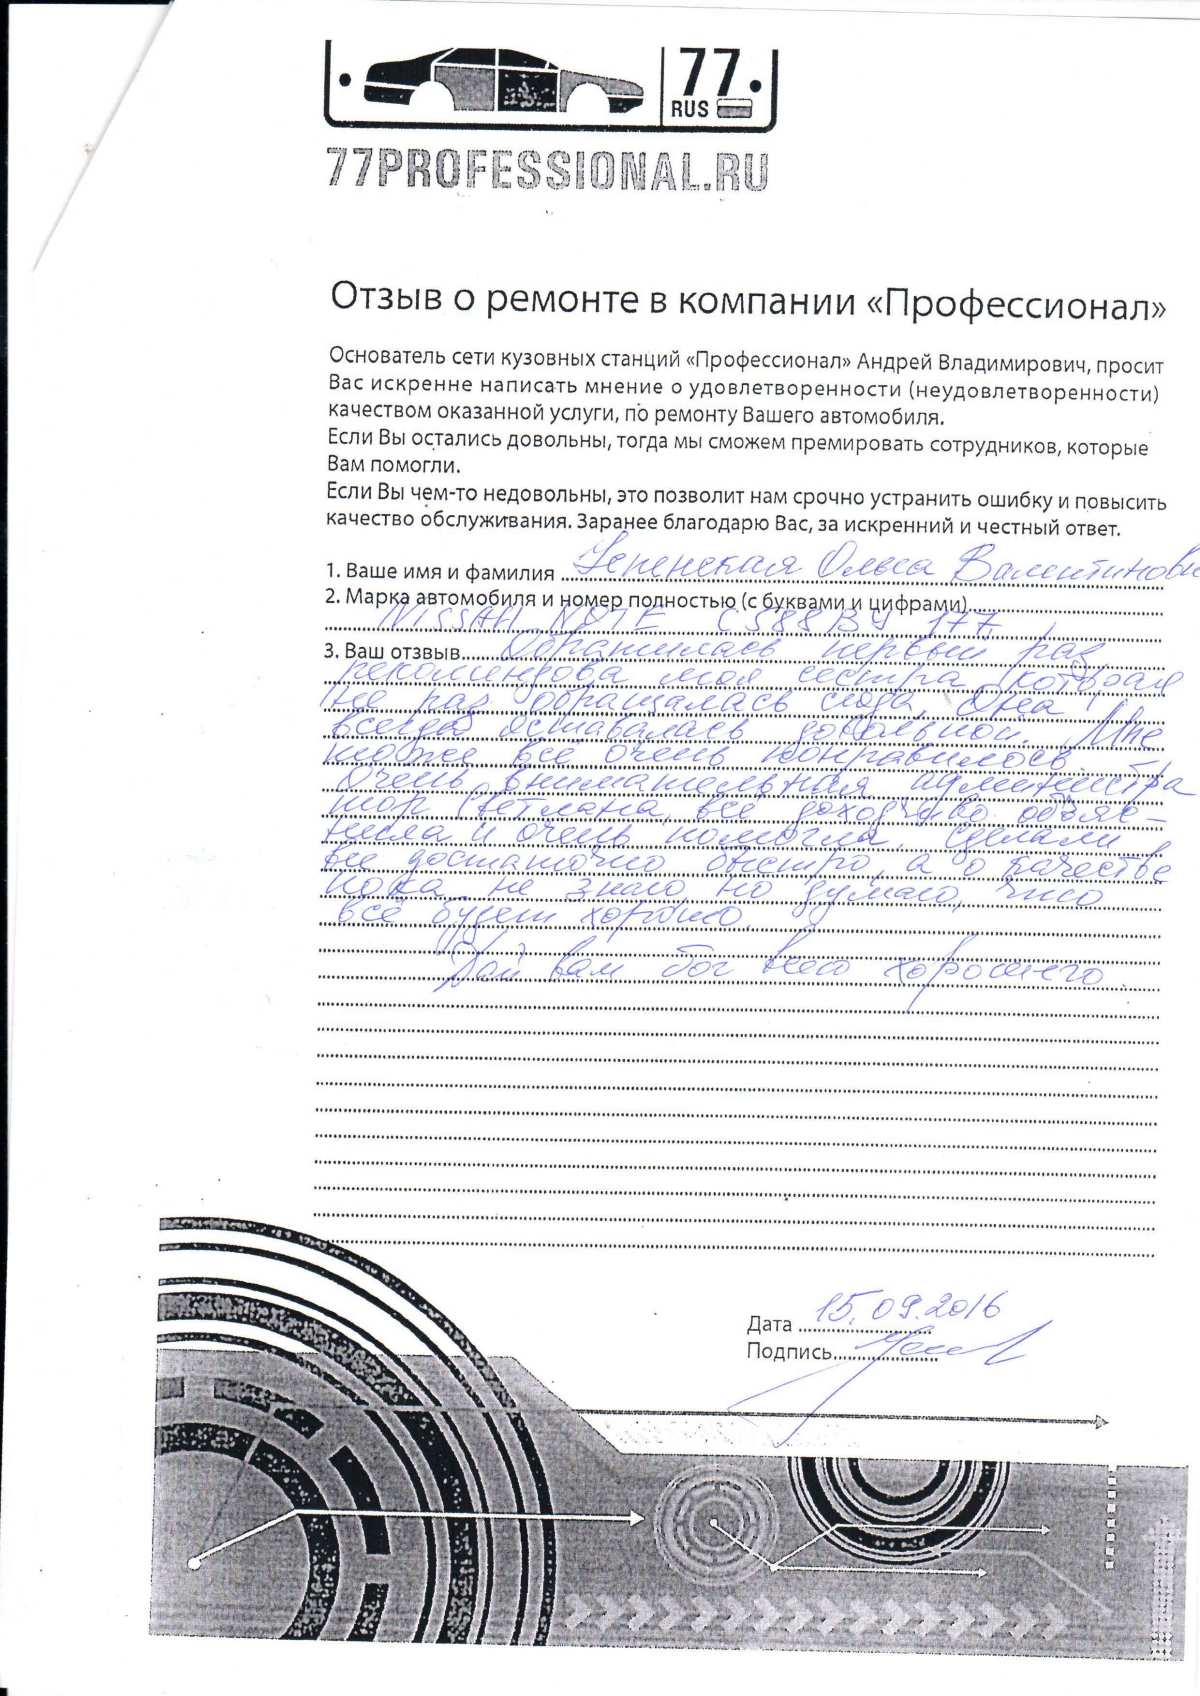 77.
RUS
77PROFESSIONAL.RU
Отзыв о ремонте в компании «Профессионал»
Основатель сети кузовных станций «Профессионал» Андрей Владимирович, просит
Вас искренне написать мнение о удовлетворенности (неудовлетворенности)
качеством оказанной услуги, по ремонту Вашего автомобиля.
Если Вы остались довольны, тогда мы сможем премировать сотрудников, которые
Вам помогли.
Если Вы чем-то недовольны, это позволит нам срочно устранить ошибку и повысить
качество обслуживания. Заранее благодарю Вас, за искренний и честный ответ.
1. Ваше имя и фамилия Успенская Ольга Валентинови
2. Марка автомобиля и номер полностью (с буквами и цифрами)
NISSAN NOTE С588ВУ 177
3. Ваш отзвыв Обратилась первый раз
рекомендова моя сестра, которая
не раз обращалась сюда. Она
всегда оставалась довольной. Мне
тоже всё очень понравилось.
Очень внимательная администра
тор Светлана, всё доходчиво объяс-
нила и очень помогла. Сделали
все достаточно быстро, а о качестве
пока не знаю, но думаю, что
всё будет хорошо.
Дай вам бог всего хорошего.
Дата 15.09.2016
Подпись